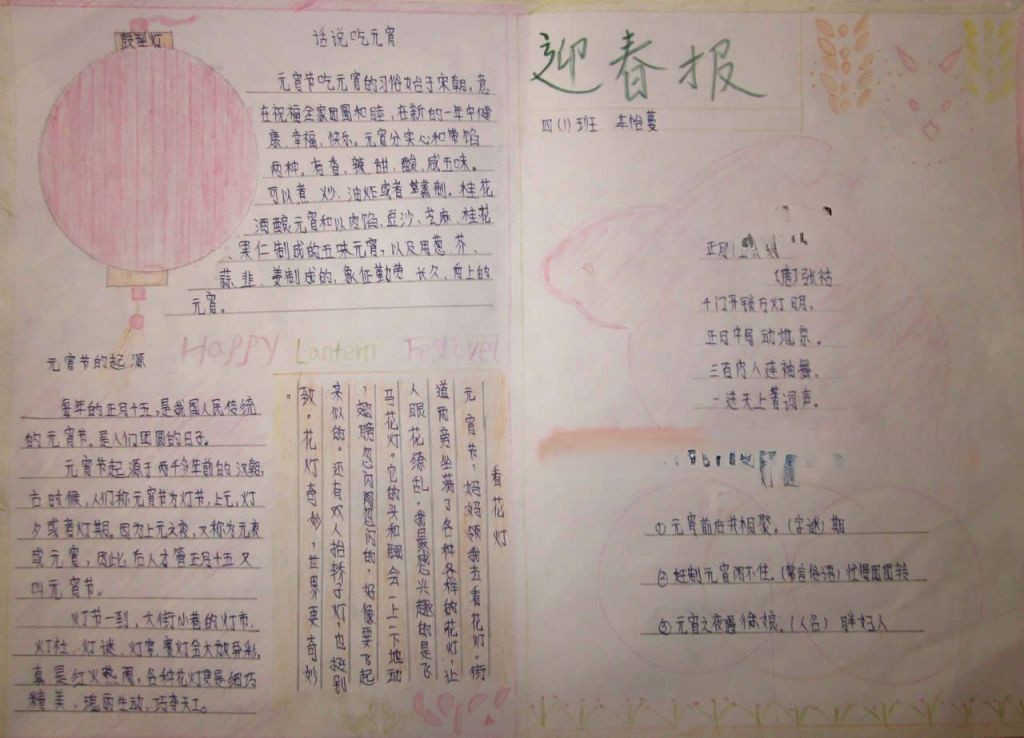 话说吃元宵
元宵节吃元宵的习俗始于宋朝，意
在祝福全家团圆和睦，在新的一年中健
康、幸福、快乐。元宵分实心和带馅
两种。有香、辣、甜、酸、咸五味。
可以煮、炒、油炸或者蒸制。桂花
酒酿元宵和以肉馅、豆沙、芝麻、桂花
、果仁制成的五味元宵，以及用葱、芥、
蒜、韭、姜制成的，象征勤劳、长久、向上的
元宵。
Happy Lantern Festivel
元宵节的起源
每年的正月十五，是我国人民传统
的元宵节。是人们团圆的日子。
元宵节起源于两千多年前的汉朝，
古时候，人们称元宵节为灯节，上元，灯
夕或者灯期。因为上元之夜，又称为元夜
或元宵，因此后人才管正月十五又
叫元宵节。
灯节一到，大街小巷的灯市、
灯社、灯谜、灯宴、赛灯会大放异彩，
真是红火热闹，各种花灯更是细巧
精美、瑰丽生动，巧夺天工。
看花灯
元宵节，妈妈领我去看花灯。街
道两旁坐满了各种各样的花灯，让
人眼花缭乱。我最感兴趣的是飞
马花灯。它的头和腿会一上一下地动
，翅膀忽闪忽闪的，好像要飞起
来似的。还有双人抬轿子灯，也挺别
致。花灯奇妙，世界更奇妙
。
迎春报
四(1)班
正月
(唐)张祜
千门开锁万灯明，
正月中旬动地京。
三百内人连袖舞，
一进天上著词声。
①元宵前后共相聚。(字谜)期
②赶制元宵闲不住。(常言俗语)忙得团团转
③元宵之夜遇侬娘。(人名)